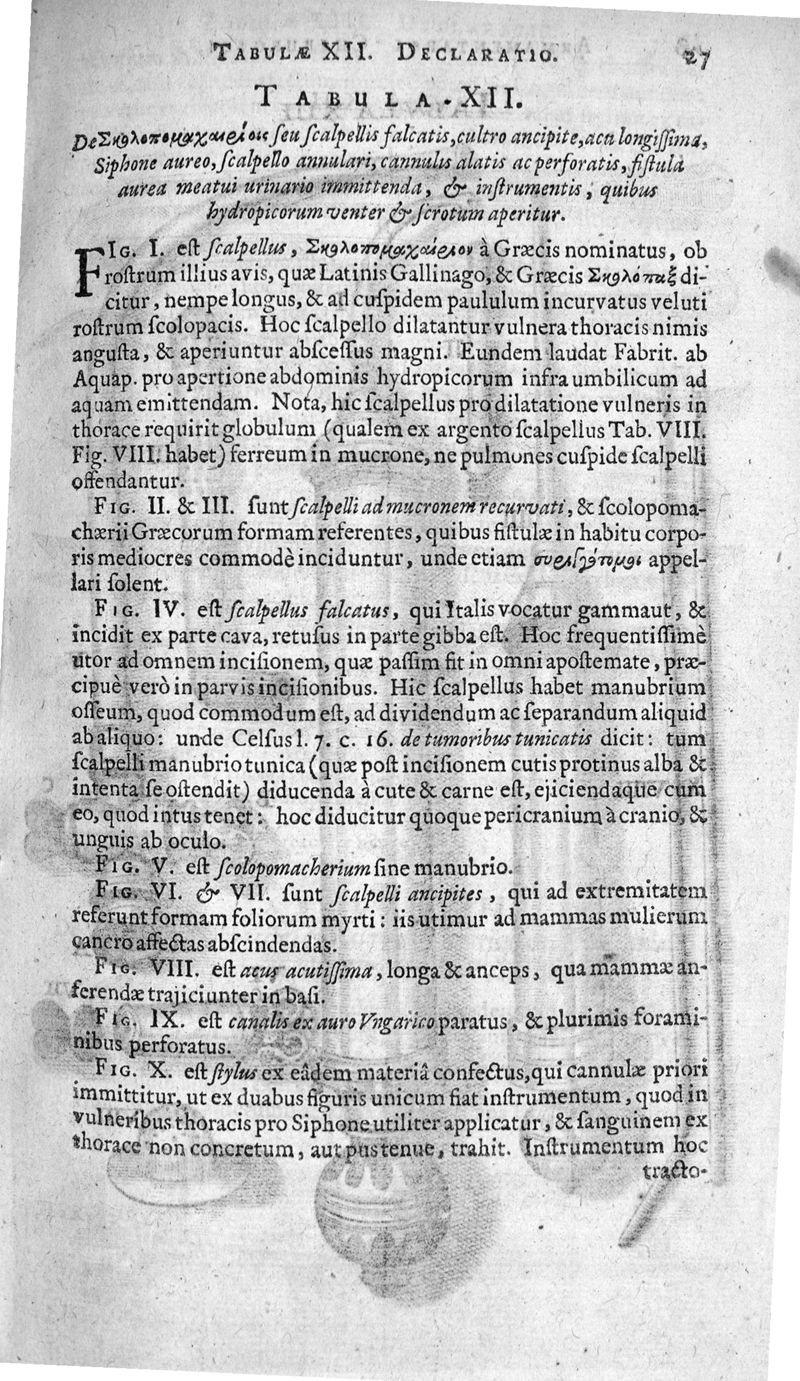 TABULÆ XII. DECLARATIO. 27
TABULA. XII.
De Σκολοπομαχαιρίοις seu scalpellis falcatis, cultro ancipite, acu longissima,
Siphone aureo, scalpello annulari, cannulis alatis ac perforatis, fistula
aurea meatui urinario immittenda, & instrumentis, quibus
hydropicorum venter & scrotum aperitur.
FIG. I. est scalpellus, Σκολοπομαχαίριον à Græcis nominatus, ob
rostrum illius avis, quæ Latinis Gallinago, & Græcis Σκολόπαξ di-
citur, nempe longus, & ad cuspidem paululum incurvatus veluti
rostrum scolopacis. Hoc scalpello dilatantur vulnera thoracis nimis
angusta, & aperiuntur abscessus magni. Eundem laudat Fabrit. ab
Aquap. pro apertione abdominis hydropicorum infra umbilicum ad
aquam emittendam. Nota, hic scalpellus pro dilatatione vulneris in
thorace requirit globulum (qualem ex argento scalpellus Tab. VIII.
Fig. VIII. habet) ferreum in mucrone, ne pulmones cuspide scalpelli
offendantur.
FIG. II. & III. sunt scalpelli ad mucronem recurvati, & scolopoma-
chærii Græcorum formam referentes, quibus fistulæ in habitu corpo-
ris mediocres commodè inciduntur, unde etiam συριγγότομοι appel-
lari solent.
FIG. IV. est scalpellus falcatus, qui Italis vocatur gammaut, &
incidit ex parte cava, retusus in parte gibba est. Hoc frequentissimè
utor ad omnem incisionem, quæ passim fit in omni apostemate, præ-
cipuè verò in parvis incisionibus. Hic scalpellus habet manubrium
osseum, quod commodum est, ad dividendum ac separandum aliquid
ab aliquo: unde Celsus l. 7. c. 16. de tumoribus tunicatis dicit: tum
scalpelli manubrio tunica (quæ post incisionem cutis protinus alba &
intenta se ostendit) diducenda à cute & carne est, ejiciendaque cum
eo, quod intus tenet: hoc diducitur quoque pericranium à cranio, &
unguis ab oculo.
FIG. V. est scolopomacherium sine manubrio.
FIG. VI. & VII. sunt scalpelli ancipites, qui ad extremitatem
referunt formam foliorum myrti: iis utimur ad mammas mulierum
cancro affectas abscindendas.
FIG. VIII. est acus acutissima, longa & anceps, qua mammæ an-
ferendæ trajiciunter in basi.
FIG. IX. est canalis ex auro Vngarico paratus, & plurimis forami-
nibus perforatus.
FIG. X. est stylus ex eâdem materiâ confectus, qui cannulæ priori
immittitur, ut ex duabus figuris unicum fiat instrumentum, quod in
vulneribus thoracis pro Siphone utiliter applicatur, & sanguinem ex
thorace non concretum, aut pus tenue, trahit. Instrumentum hoc
tracto-